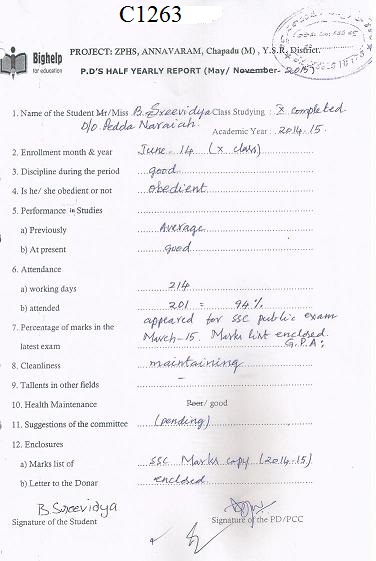 C1263
Bighelp
for education
PROJECT: ZPHS, ANNAVARAM, Chapadu (M), Y.S.R. District.
P.D'S HALF YEARLY REPORT (May/ November- 2015)
1. Name of the Student Mr/Miss B. Sreevidya Class Studying : X completed
D/o Pedda Naraiah. Academic Year : 2014-15.
2. Enrollment month & year June-14 (X class)
3. Discipline during the period good
4. Is he/ she obedient or not obedient
5. Performance in Studies
a) Previously Average
b) At present good
6. Attendance
a) working days 214
b) attended 201 = 94%
7. Percentage of marks in the appeared for SSC public exam
latest exam March-15. Marks list enclosed.
G.P.A:
8. Cleanliness maintaining
9. Tallents in other fields -
10. Health Maintenance Poor/ good
11. Suggestions of the committee (pending)
12. Enclosures
a) Marks list of SSC Marks copy (2014-15)
b) Letter to the Donar enclosed
B. Sreevidya
Signature of the Student Signature of the PD/PCC